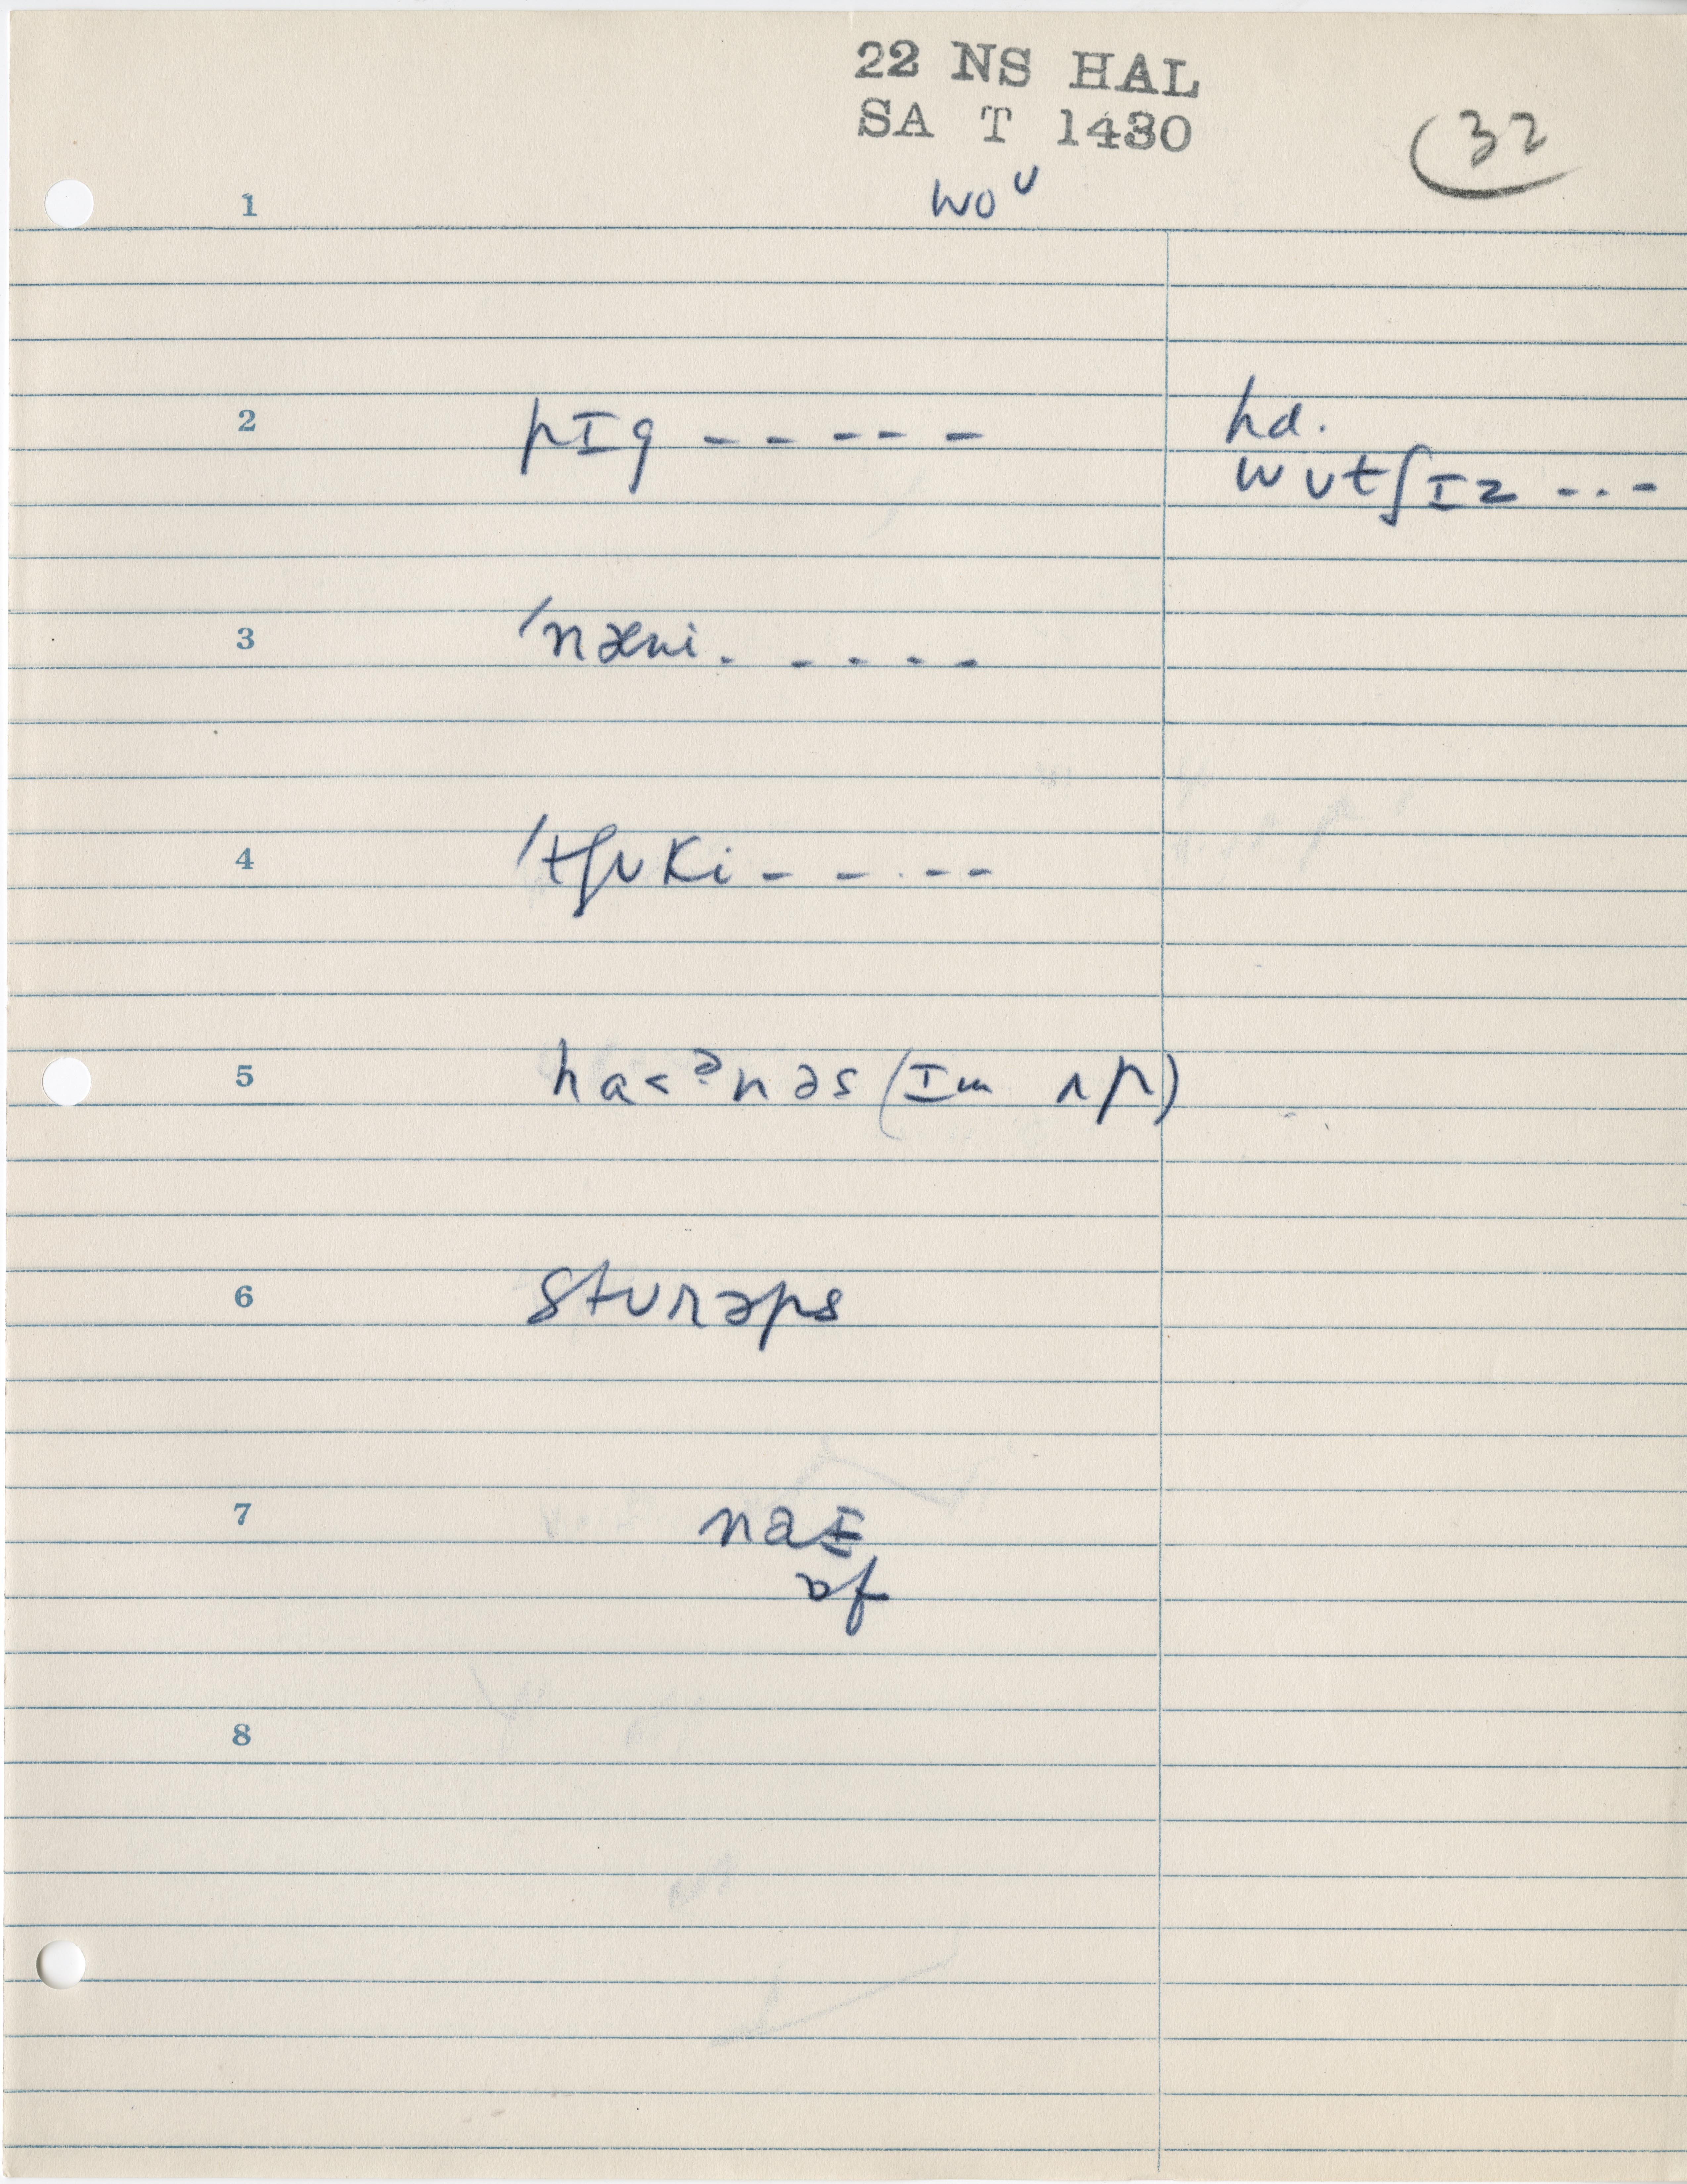 22 NS HAL
SA T 1430
32
1 woᶷ
2 pIg ----- hd.
wʊtʃIz ...-
3 'næni. - - - -
4 'tʃʊki - - - - -
5 ha<ˀnəs (Im ʌp)
6 stʊrəps
7 naI
əf
8